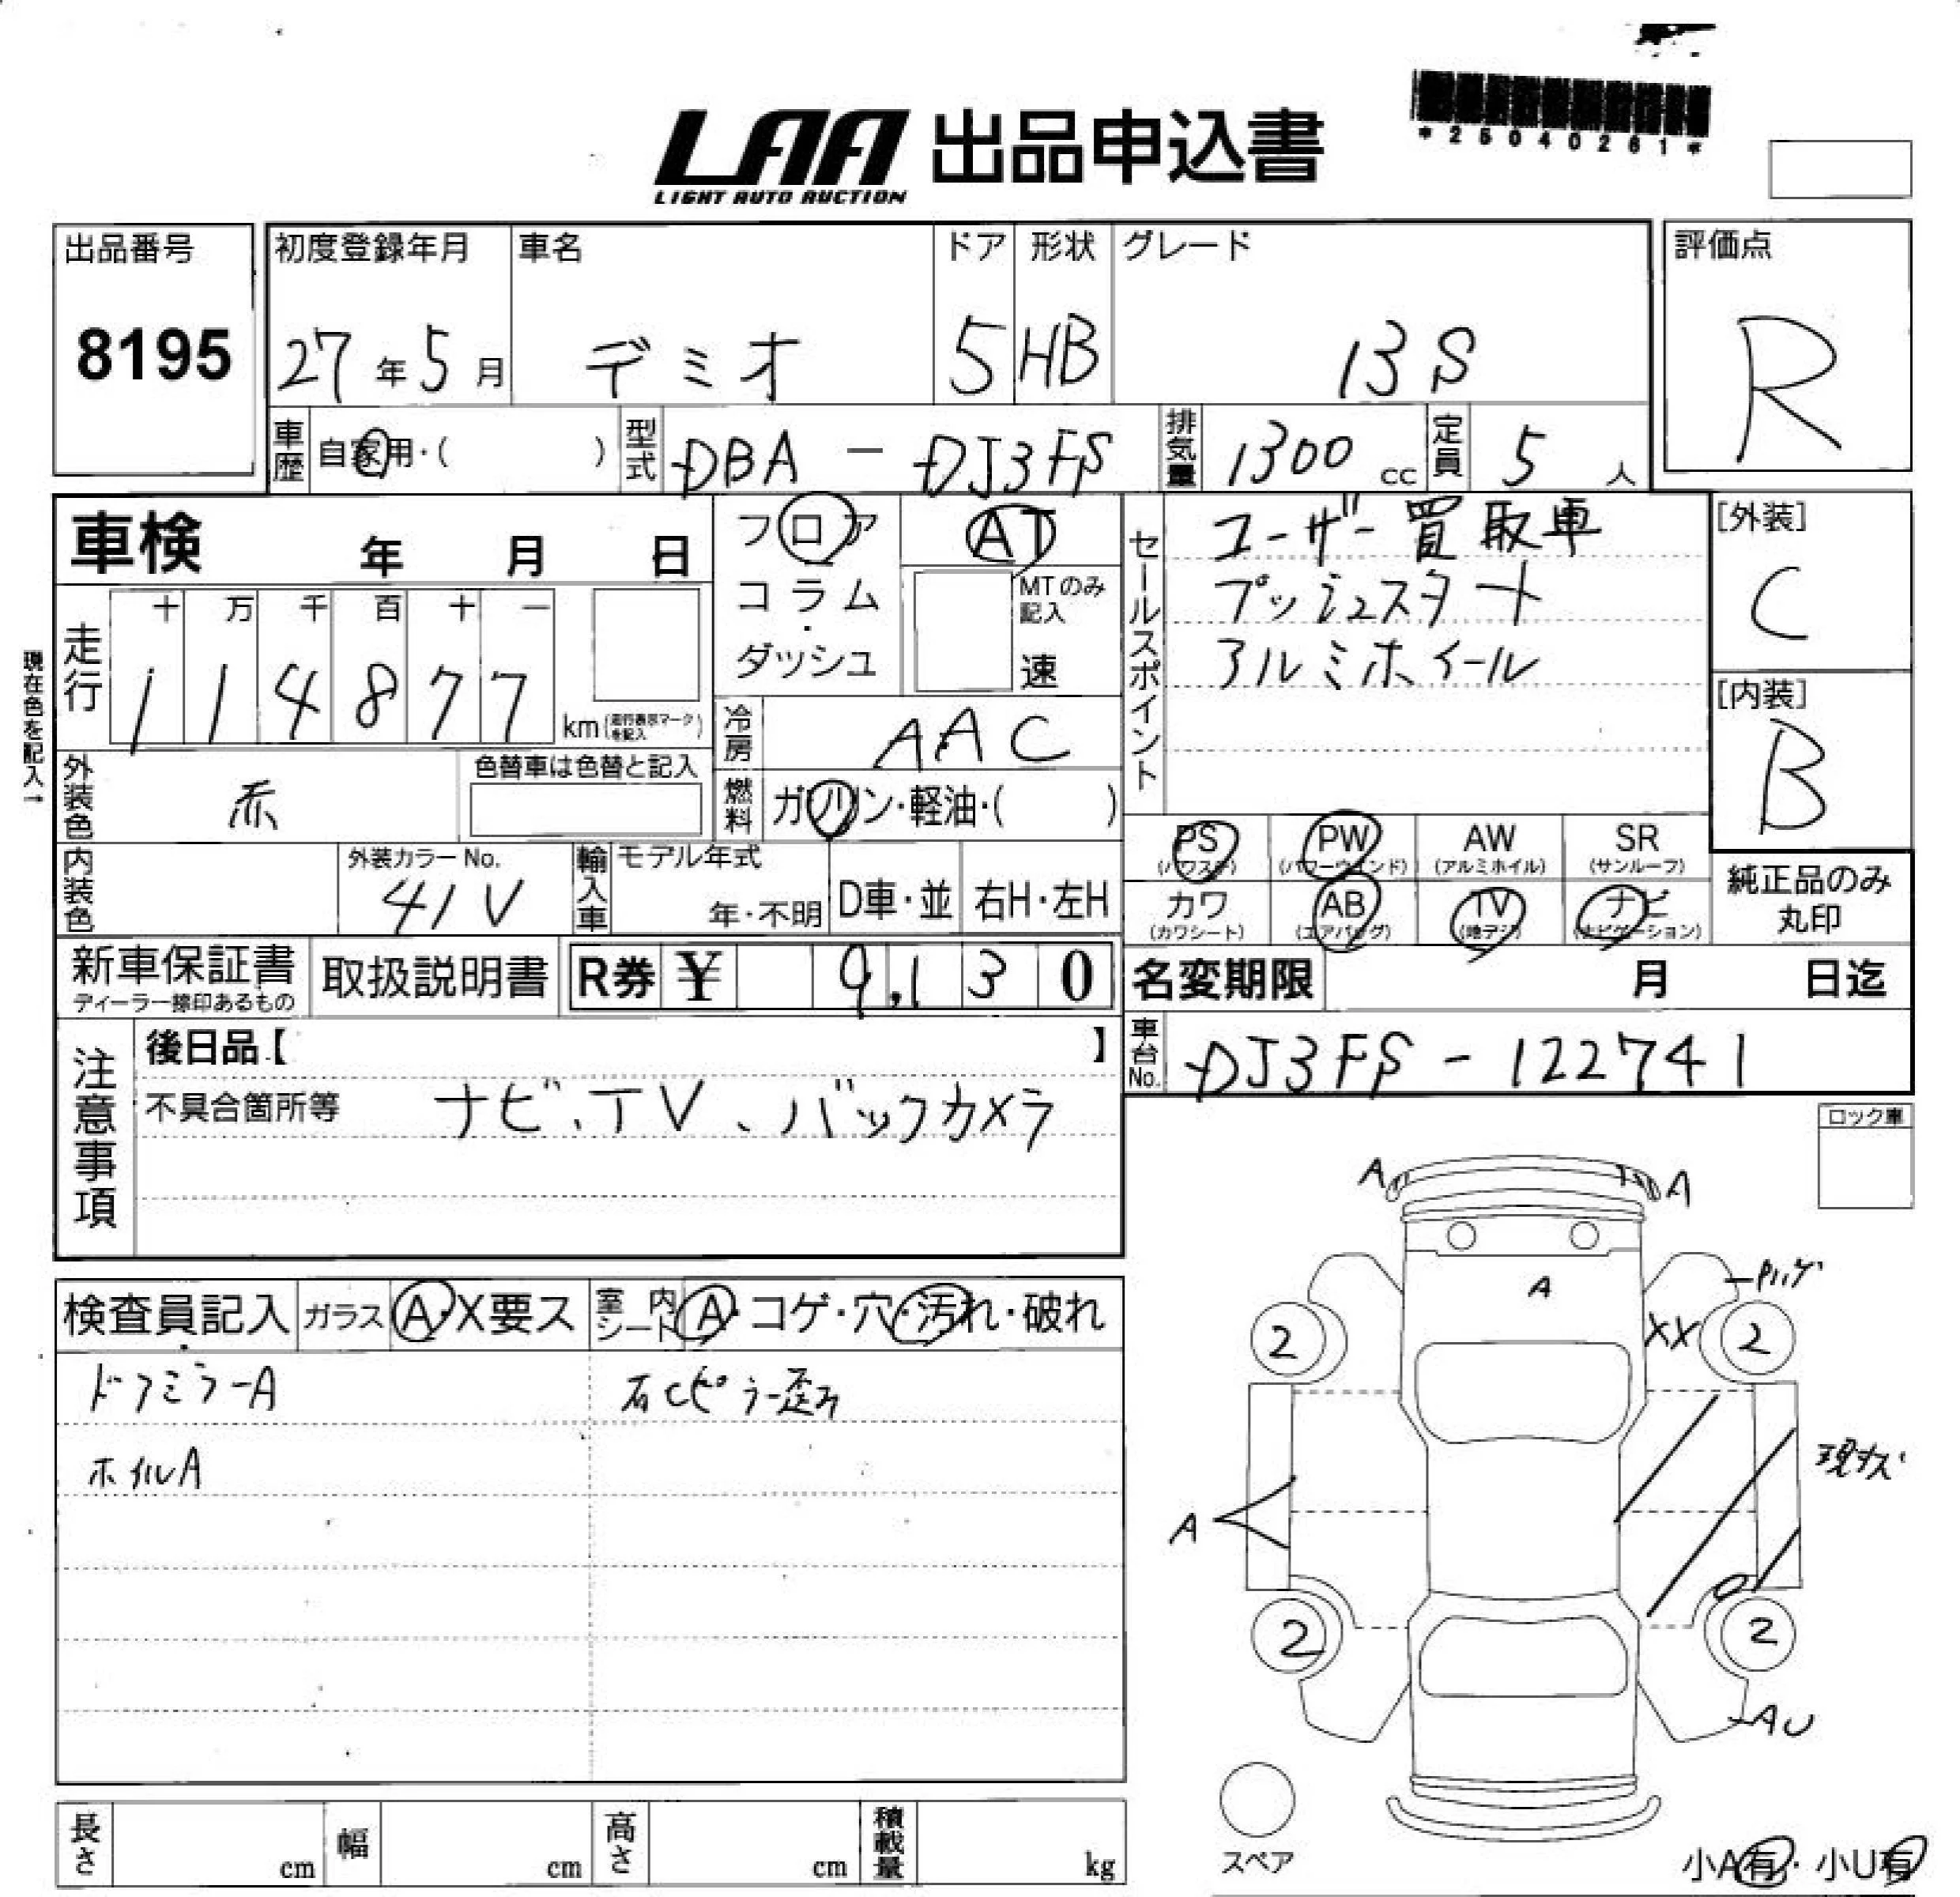 *25040261*
LAA 出品申込書
LIGHT AUTO AUCTION
出品番号
8195
初度登録年月
27年5月
車名
デミオ
ドア
5
形状
HB
グレード
13S
評価点
R
車歴
自家用・( )
型式
DBA - DJ3FS
排気量
1300 cc
定員
5 人
車検 年 月 日
フロア
コラム
・
ダッシュ
AT
MTのみ
記入
速
セールスポイント
ユーザー買取車
プッシュスタート
アルミホイール
[外装]
C
[内装]
B
現在色を記入→
走行
十 万 千 百 十 一
1 1 4 8 7 7
km(走行表示マークを記入)
冷房
AAC
燃料
ガソリン・軽油・( )
外装色
赤
色替車は色替と記入
内装色
外装カラーNo.
41V
輸入車
モデル年式
年・不明
D車・並
右H・左H
PS
(パワステ)
PW
(パワーウインド)
AW
(アルミホイル)
SR
(サンルーフ)
カワ
(カワシート)
AB
(エアバッグ)
TV
(地デジ)
ナビ
(ナビゲーション)
純正品のみ
丸印
新車保証書
ディーラー捺印あるもの
取扱説明書
R券 ¥ 9,130
名変期限 月 日迄
車台No.
DJ3FS - 122741
注意事項
後日品【 】
不具合箇所等 ナビ、TV、バックカメラ
ロック車
検査員記入
ガラス A・X要ス
室内シート A・コゲ・穴・汚れ・破れ
ドアミラーA
右Cピラー歪み
ホイルA
A
A
A
XX
2
2
現状
A
2
2
AU
スペア
小A有・小U有
長さ cm
幅 cm
高さ cm
積載量 kg